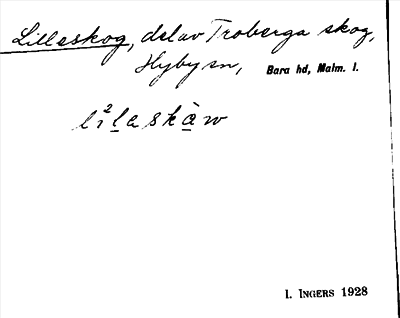 Lilleskog, del av Troberga skog,
Hyby sn, Bara hd, Malm. l.
li²laskàw
I. INGERS 1928